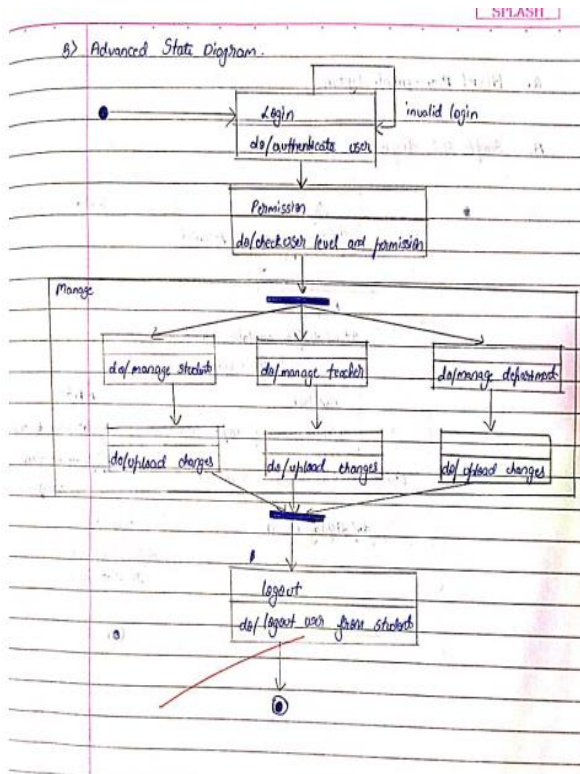 SPLASH
B) Advanced State Diagram.
Login
invalid login
do/authenticate user
Permission
do/check user level and permission
Manage
do/manage students
do/manage teacher
do/manage department
do/upload changes
do/upload changes
do/upload changes
logout
do/logout user from students